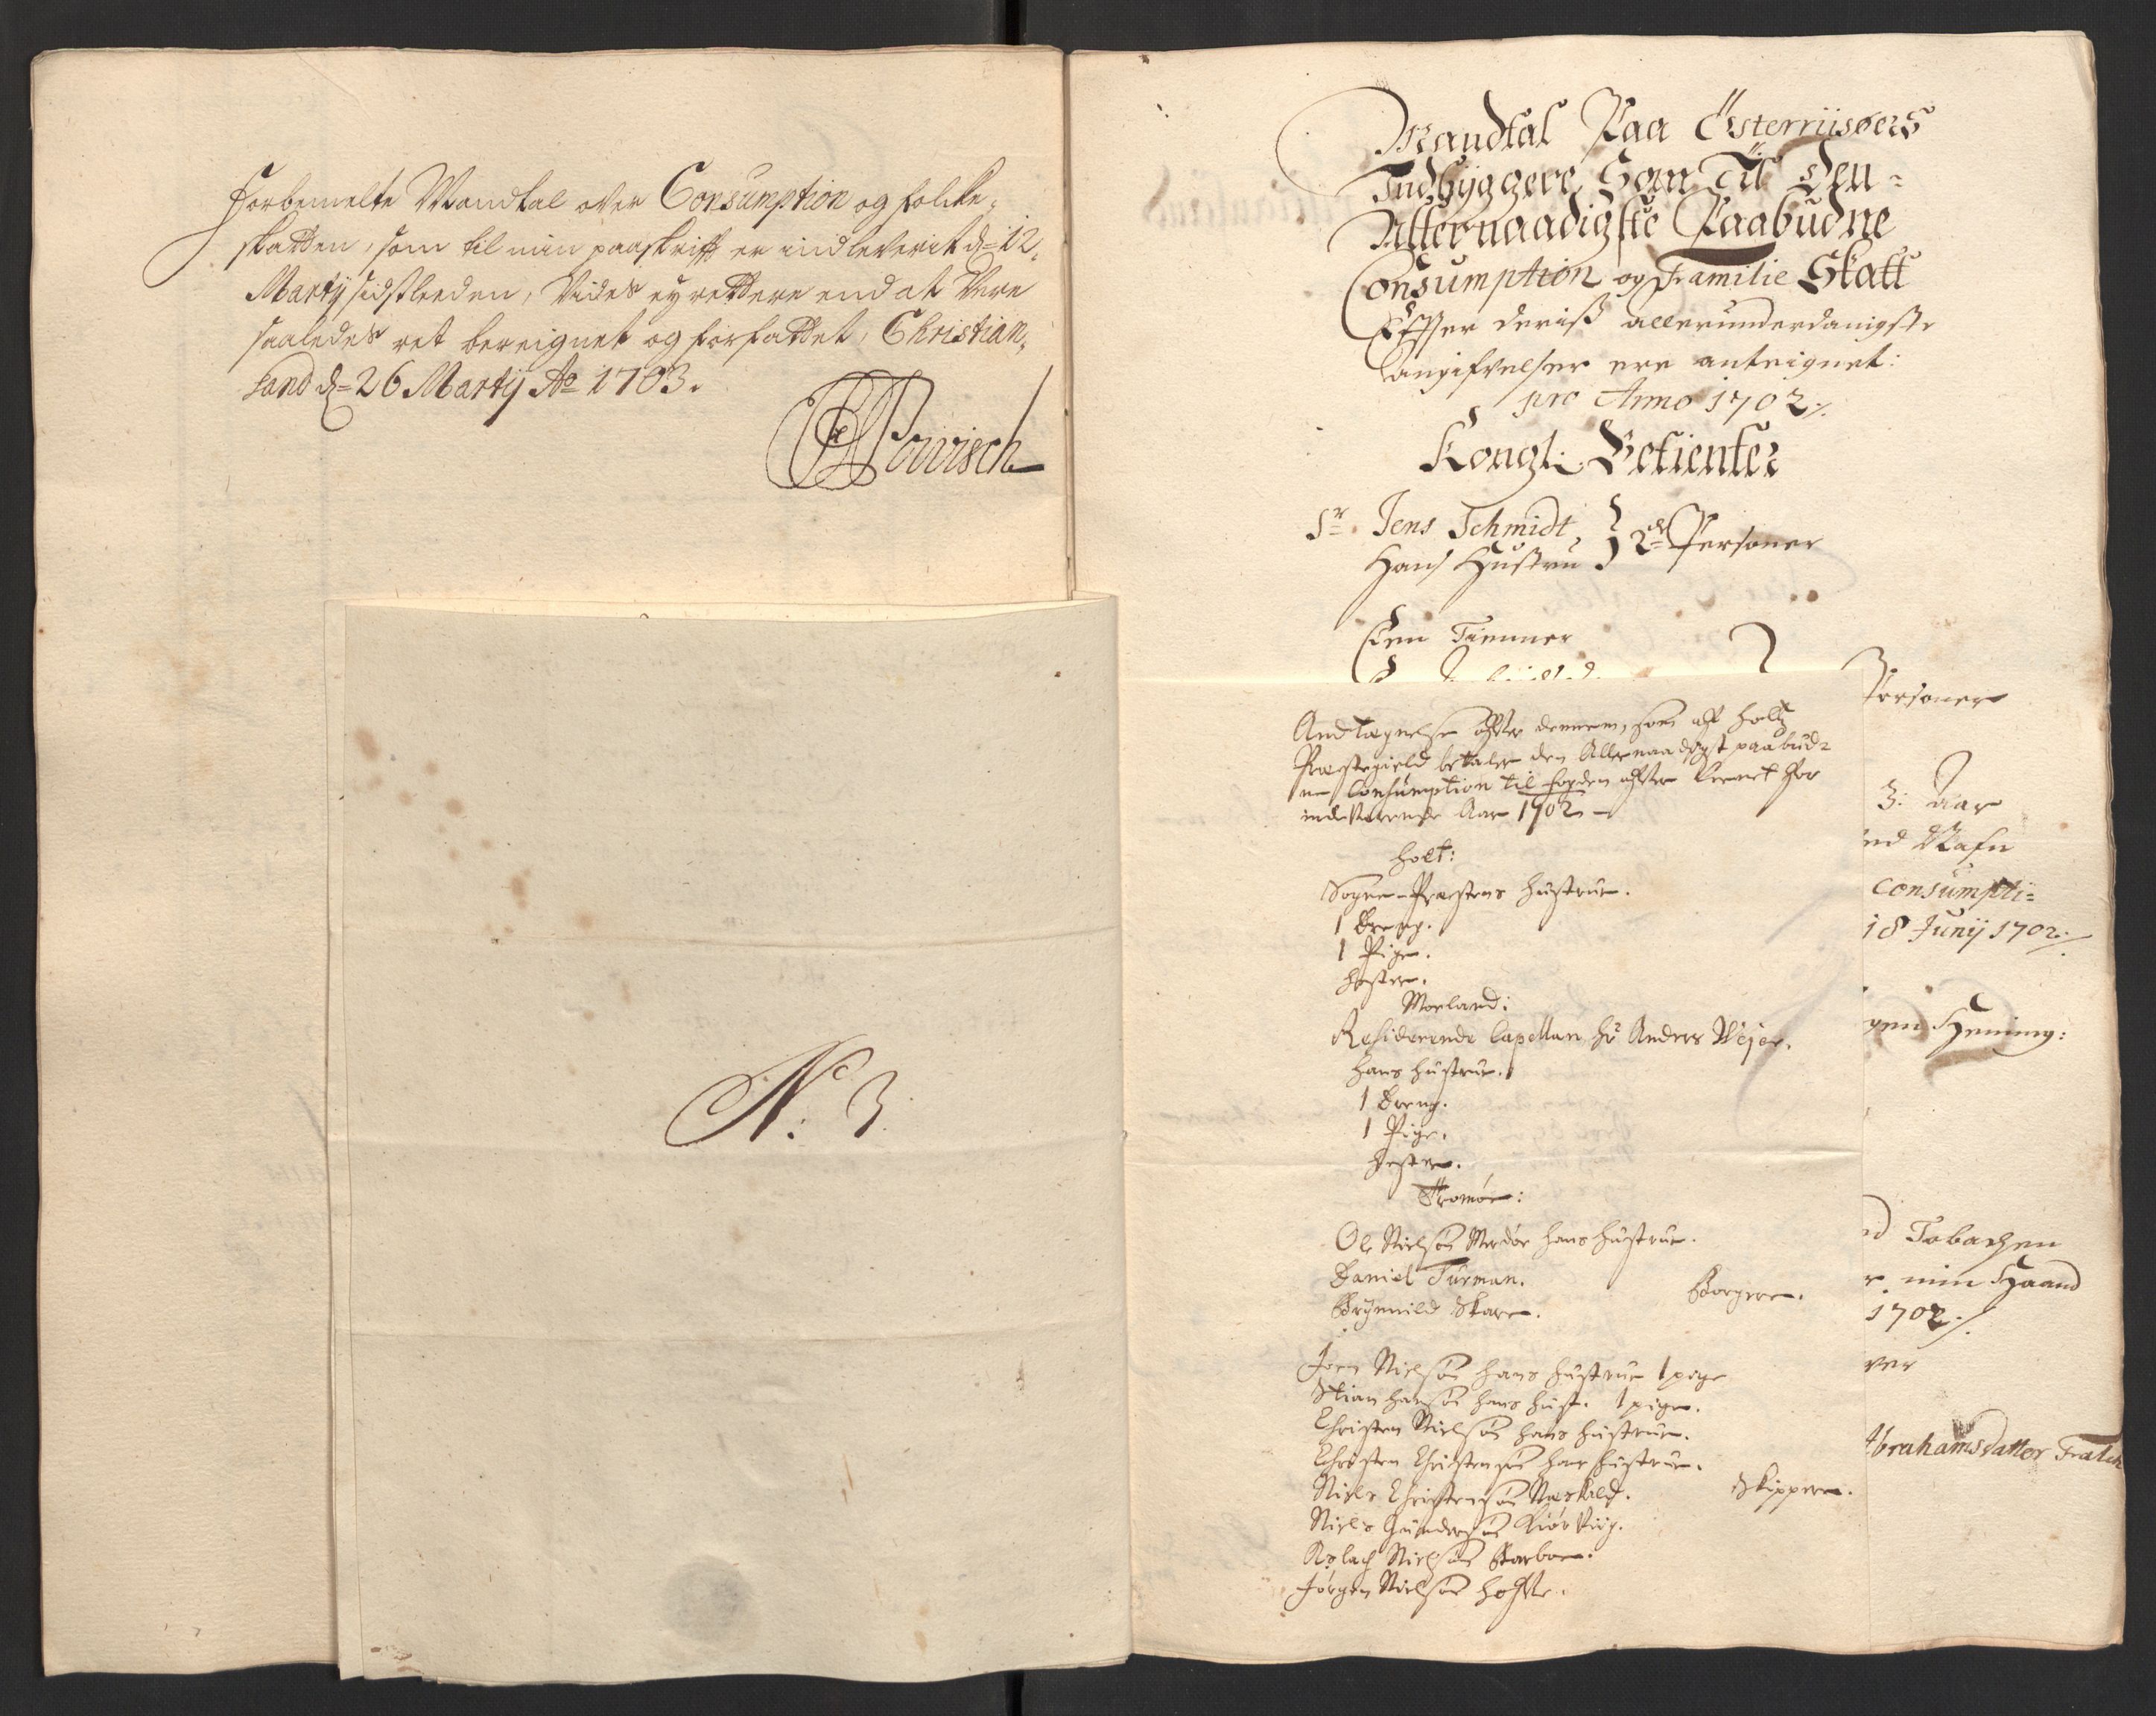 Forbemelte Mandtal over Consumption og folcke-
skatten, som til min paaskrift er indleverit d= 12.
Martij sidstleeden, Vides ey rettere end at Vere
saaledes ret bereignet og forfattet, Christian-
sand d= 26 Martij Ao 1703.
Powisch
N: 3
Mandtal Paa Österriisøers
Indbyggere, Som Til Den-
Allernaadigste Paabudne
Consumption og Familie Skatt
Effter deriss allerunderdanigste
angifvelser ere anteignet:
pro Anno 1702 ./.
Kongl: Betienter
Sr Jens Schmidt
Hans Hustru } 2de Personer
Een Tienner
Personer
3: aar
consumpti=
18 Junij 1702 ./.
Hening:
Tobachen
min Haand
1702 ./.
Abrahamsdatter
Andtegnelse ofver dennem, som aff Holtz
Præstegield betaler den Allernaadigst paabud=
ne Consumption til fogden effter Reenet for
indeværende Aar 1702 -
Holt:
Sogne-Præstens Hustrue.
1 Dreng.
1 Pige.
Hester.
Moeland:
Residerende Capellan Hr Anders Wejer.
Hans Hustrue.
1 Dreng.
1 Pige.
Hester.
Tromøe:
Ole Nielsøn Merdøe Hans Hustrue.
Daniel Turman.
Brynnild Skare.
Borgere.
Joen Nielsøn Hans Hustrue 1 pige
Stian Hansøn Hans Hust. 1 pige.
Christen Nielsøn Hans Hustrue.
Christen Christensøn Hans Hustrue.
Niels Christensøn
Skippere.
Niels Gundersøn Kiørviig.
Aslach Nielsøn
Jørgen Nielsøn Hofste.